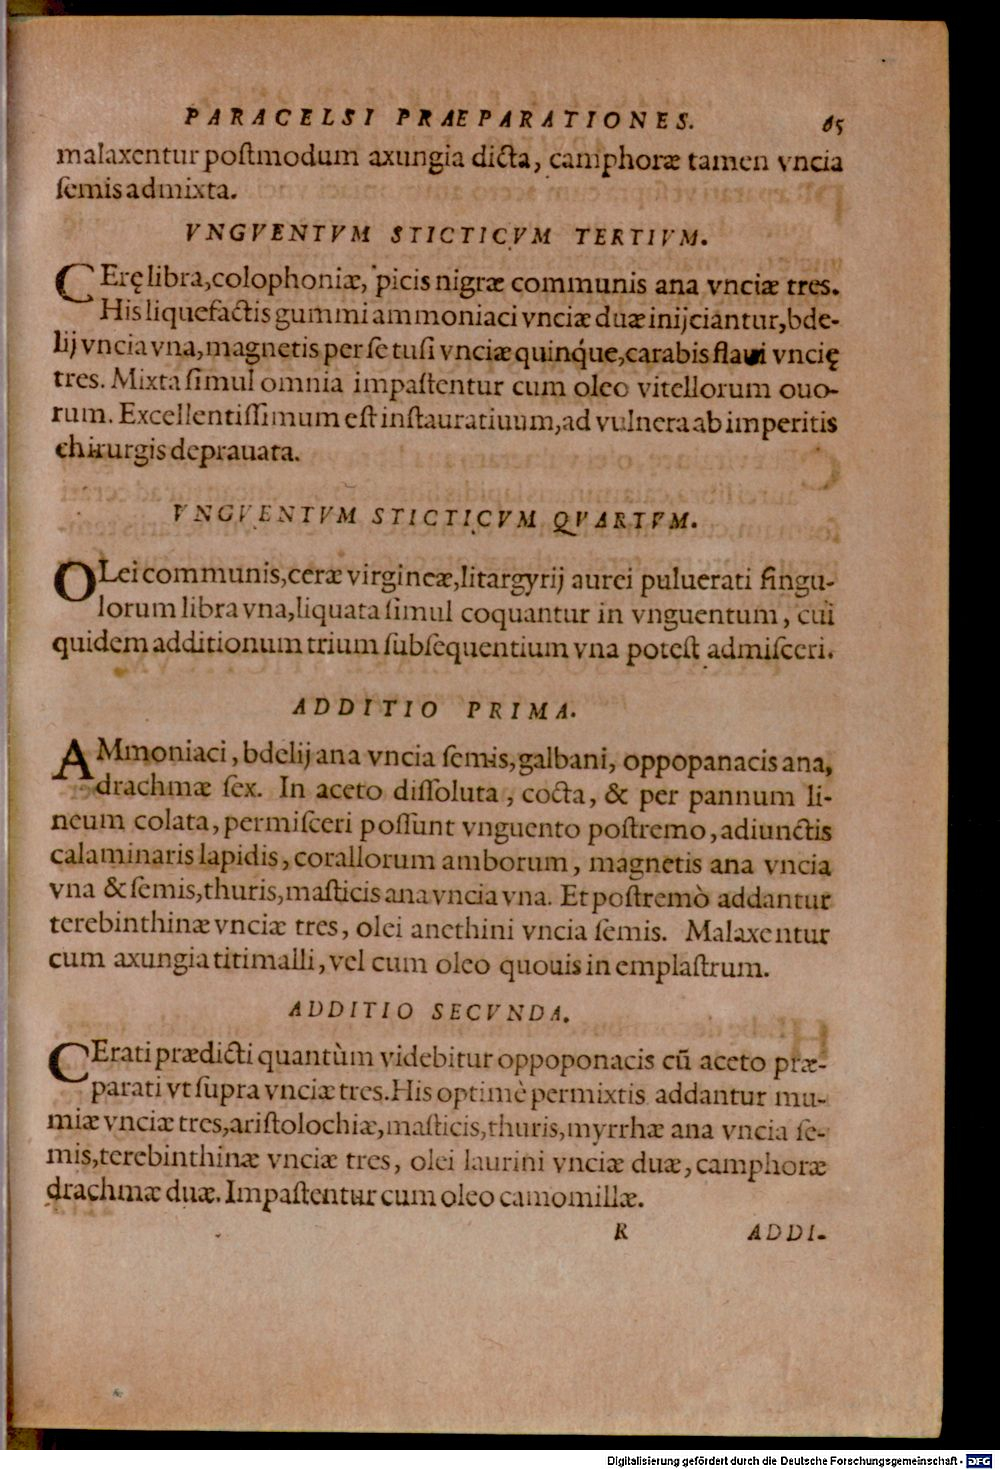 PARACELSI PRAEPARATIONES. 65
malaxentur poſtmodum axungia dicta, camphoræ tamen vncia
ſemis admixta.
VNGVENTVM STICTICVM TERTIVM.
CErę libra, colophoniæ, picis nigræ communis ana vnciæ tres.
His liquefactis gummi ammoniaci vnciæ duæ inijciantur, bde-
lij vncia vna, magnetis per ſe tuſi vnciæ quinq́ue, carabis flaui vncię
tres. Mixta ſimul omnia impaſtentur cum oleo vitellorum ouo-
rum. Excellentiſſimum eſt inſtauratiuum, ad vulnera ab imperitis
chirurgis deprauata.
VNGVENTVM STICTICVM QVARTVM.
OLei communis, ceræ virgineæ, litargyrij aurei puluerati ſingu-
lorum libra vna, liquata ſimul coquantur in vnguentum, cui
quidem additionum trium ſubſequentium vna poteſt admiſceri.
ADDITIO PRIMA.
AMmoniaci, bdelij ana vncia ſemis, galbani, oppopanacis ana,
drachmæ ſex. In aceto diſſoluta, cocta, & per pannum li-
neum colata, permiſceri poſſunt vnguento poſtremo, adiunctis
calaminaris lapidis, corallorum amborum, magnetis ana vncia
vna & ſemis, thuris, maſticis ana vncia vna. Et poſtremò addantur
terebinthinæ vnciæ tres, olei anethini vncia ſemis. Malaxentur
cum axungia titimalli, vel cum oleo quouis in emplaſtrum.
ADDITIO SECVNDA.
CErati prædicti quantùm videbitur oppoponacis cū aceto præ-
parati vt ſupra vnciæ tres. His optimè permixtis addantur mu-
miæ vnciæ tres, ariſtolochiæ, maſticis, thuris, myrrhæ ana vncia ſe-
mis, terebinthinæ vnciæ tres, olei laurini vnciæ duæ, camphoræ
drachmæ duæ. Impaſtentur cum oleo camomillæ.
R ADDI-
Digitalisierung gefördert durch die Deutsche Forschungsgemeinschaft - DFG